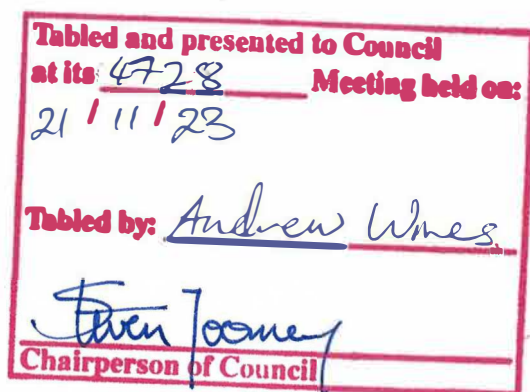 Tabled and presented to Council
at its 4728 Meeting held on:
21 / 11 / 23
Tabled by: Andrew Wines
Steven Toomey
Chairperson of Council